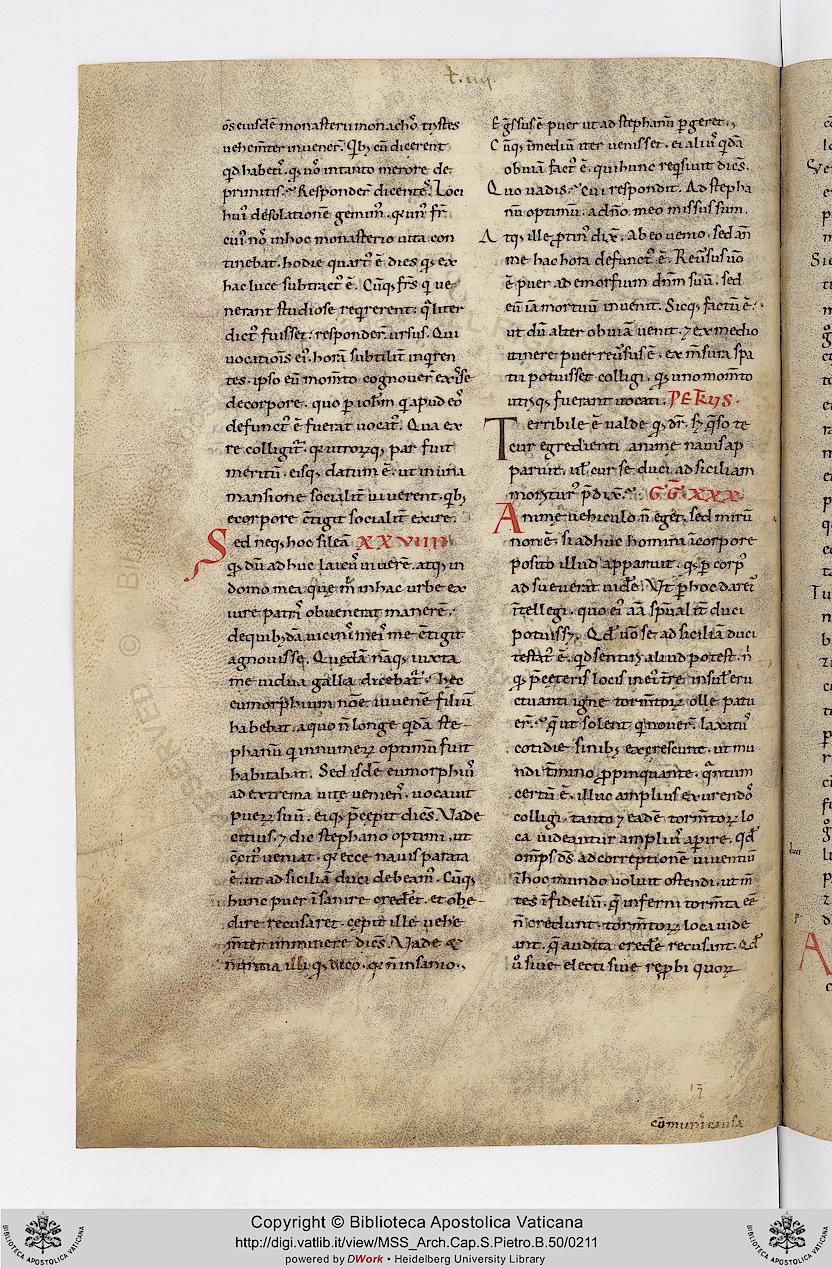 t. iiij.
os eiusdē monasterii monachos tristes
uehemter inuener̄. Qibꝫ cū dicerent
qd habetis. qꝫ nō intanto merore de
primitis? Responder̄ dicentes. Loci
huiꝰ desolationē gemimꝰ. qꝫ unꝰ fr̄
cuiꝰ nō inhoc monasterio uita con
tinebat. hodie quartꝰ ē dies qꝫ ex
hac luce subtractꝰ ē. Cūqꝫ frs̄ q ue
nerant studiose reqrerent. qͣliter
dictꝰ fuisset. responder̄ ursus. Qui
uocationis eiꝰ horā subtilit̄ inqren
tes. ipso eū momto cognouer̄ exisse
decorpore. quo p ioh̄m q apud eos
defunctꝰ ē fuerat uocatꝰ. Qua ex
re colligitͬ. qꝫ utrorꝫqꝫ par fuit
meritū. eisqꝫ datum ē. ut inuna
mansione socialit̄ uiuerent. qbꝫ
ecorpore ctigit socialit̄ exire.
Sed neqꝫ hoc sileā XXVIIII
qꝫ dū adhuc laicꝰ uiuerē. atqꝫ in
domo mea que m̄ inhac urbe ex
iure patris obuenerat manerē.
dequibꝰdā uicinis meis me ctigit
agnouisse. Quedā nāqꝫ iuxta
me uidua galla dicebatͬ. hec
eumorphium noē iuuenē filiū
habebat. aquo n̄ longe qdā ste
phanꝰ q innumerꝫ optimꝰ fuit
habitabat. Sed isdē eumorphiꝰ
ad extrema uite ueniens. uocauit
puerꝫ suū. eiqꝫ pcepit dicēs. Vade
citius. ⁊ dic stephano optimi. ut
citꝰ ueniat. qꝫ ecce nauis parata
ē. ut ad siciliā duci debeamꝰ. Cūqꝫ
hunc puer isanire crederet. et obe
dire recusaret. cepit ille uehe
mter imminere dicēs. Vade &
nuntia illi qꝫ dico. qꝫ n̄ insanio.
Egssus ē puer ut ad stephanū pgeret.
Cūqꝫ imediū iter uenisset. ei aliꝰ qdā
obuiā factꝰ ē. qui hunc reqsiuit dicēs.
Quo uadis? cui respondit. Ad stepha
nū optimū. adno. meo missus sum.
Atqꝫ ille ptinꝰ dixͭ. Ab eo uenio. sed an̄
me hac hora defunctꝰ ē. Reuersus uō
ē puer ad emorfium dn̄m suū. sed
eū iā mortuū inuenit. Sicqꝫ factū ē.
ut dū alter obuiā uenit. ⁊ ex medio
itinere puer reuersus ē. ex mensura spa
tii potuisset colligi. qꝫ uno momto
utriqꝫ fuerant uocati. PETRUS.
Terribile ē ualde qꝫ dr̄. sꝫ qso te
cur egredienti anime nauis ap
paruit. ut cur se duci ad siciliam
moriturꝰ pdixͭ. GG. XXX
Anime uehiculo n̄ eget. sed mirū
non ē. si adhuc homini icorpore
posito illud apparuit. qꝫ p corpꝰ
adsueuerat uide. Vt phoc daret̄
itellegi. quo eiꝰ aīa spualit̄ duci
potuisset. Qd uō se ad siciliā duci
testatꝰ ē. qd sentiri aliud potest. n̄
qꝫ pceteris locis ineiꝰ terre insulis eru
ctuanti igne tormtorꝫ olle patu
er̄. Qͤ ut solent q nouer̄. laxatis
cotidie sinibꝫ excrescunt. ut mu
ndi tmino ppinquante. quantum
certū ē. illuc amplius exurendos
colligi. tanto ⁊ eadē tormtorꝫ lo
ca uideantur amplius aperire. qd
omps ds ad correptionē uiuentiū
ihoc mundo uoluit ostendi. ut m̄
tes ifideliū. q inferni tormta eē
n̄ credunt. tormtorꝫ loca uide
ant. q audita credē recusant. Qd
u siue electi siue repbi quorꝫ
17
cōmunis causa
Copyright © Biblioteca Apostolica Vaticana
http://digi.vatlib.it/view/MSS_Arch.Cap.S.Pietro.B.50/0211
powered by DWork • Heidelberg University Library